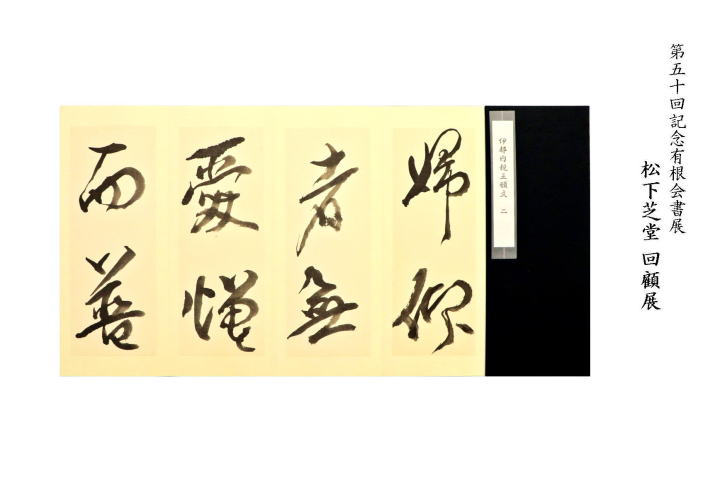 第五十回記念有根会書展
松下芝堂 回顧展
伊都内親王願文 二
婦仰
者無
愛憎
而善